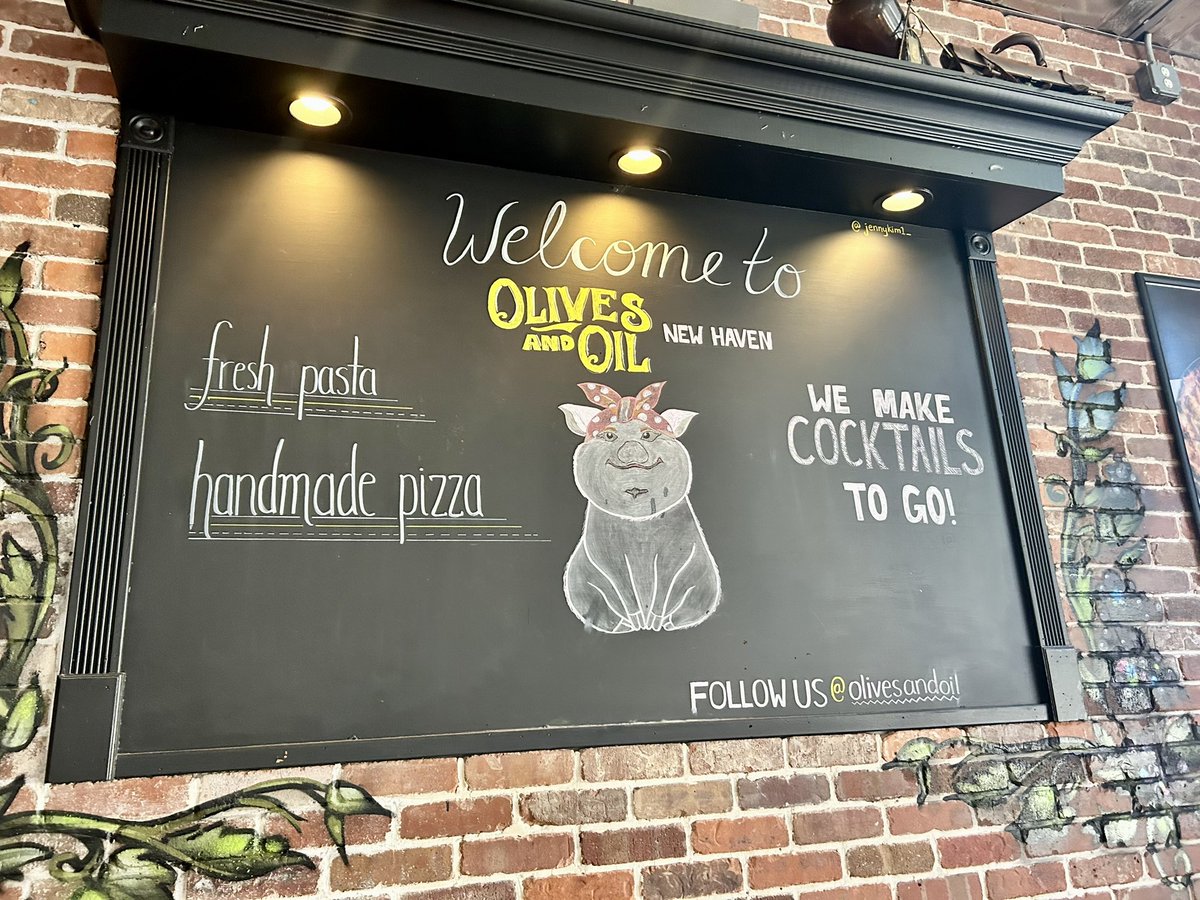 @jennykim1_
Welcome to
OLIVES
AND OIL
NEW HAVEN
fresh pasta
handmade pizza
WE MAKE
COCKTAILS
TO GO!
FOLLOW US @olivesandoil